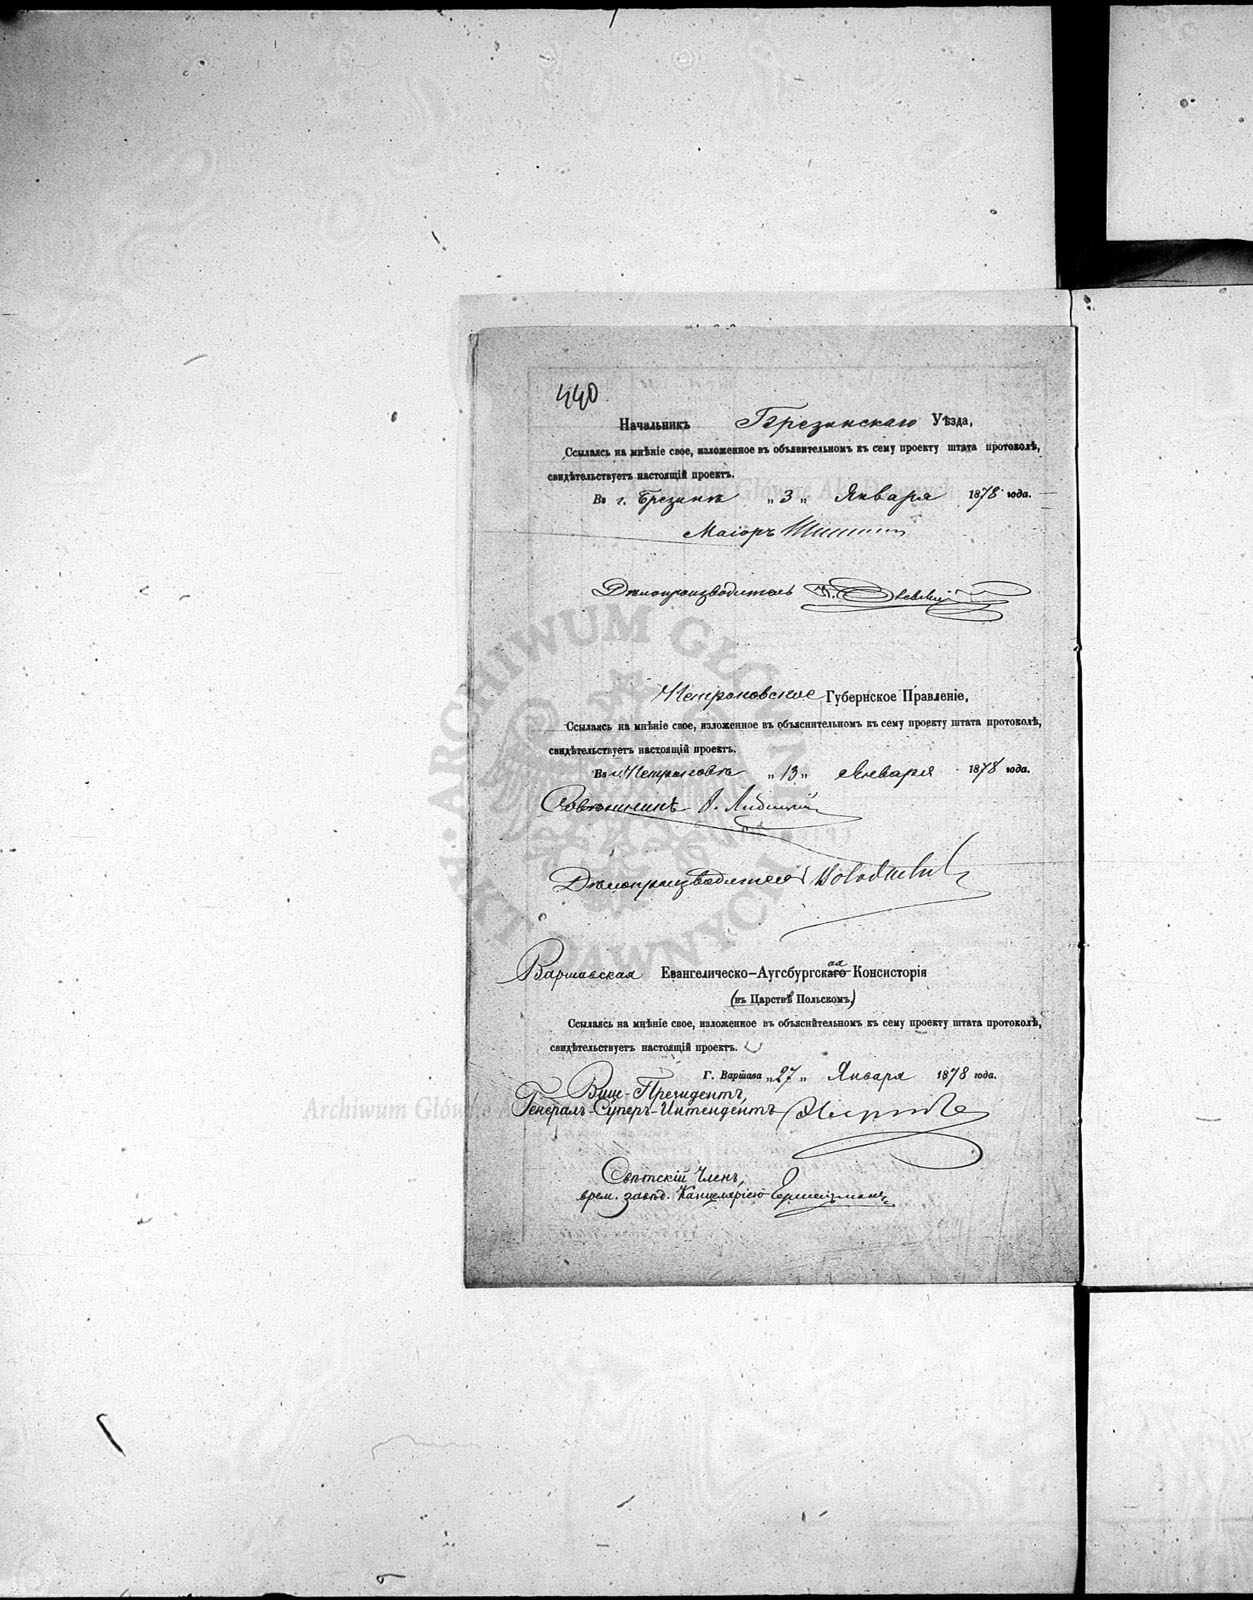 440
Начальникъ Брезинскаго Уѣзда,
Ссылаясь на мнѣніе свое, изложенное въ объявительномъ къ сему проекту штата протоколѣ,
свидѣтельствуетъ настоящій проектъ.
Въ г. Брезинѣ „ 3 „ Января 1878 года.
Маіоръ
Дѣлопроизводитель
Петроковское Губернское Правленіе,
Ссылаясь на мнѣніе свое, изложенное въ объяснительномъ къ сему проекту штата протоколѣ,
свидѣтельствуетъ настоящій проектъ.
Въ г. Петроковѣ „ 13 „ Января 1878 года.
Совѣтникъ
Дѣлопроизводитель
Варшавская Евангелическо-Аугсбургская Консисторія
(въ Царствѣ Польскомъ.)
Ссылаясь на мнѣніе свое, изложенное въ объяснительномъ къ сему проекту штата протоколѣ,
свидѣтельствуетъ настоящій проектъ.
Г. Варшава „ 27 „ Января 1878 года.
Вице-Президентъ,
Генералъ-Суперъ-Интендентъ
Свѣтскій Членъ,
врем. завѣд. Канцеляріею
ARCHIWUM GŁÓWNE AKT DAWNYCH
Archiwum Główne Akt Dawnych